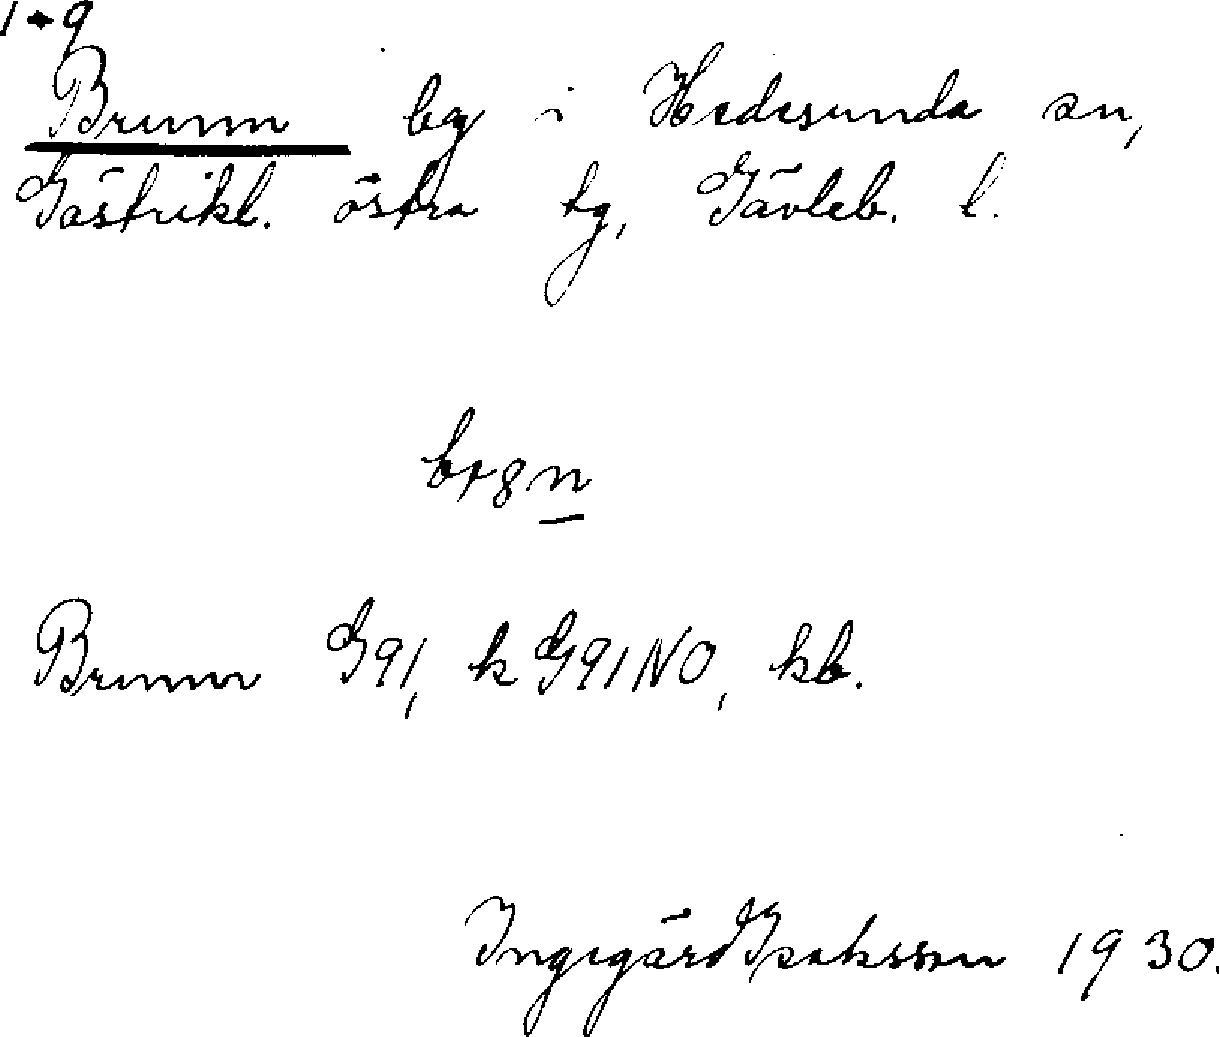 1 + 9
Brunn by i Hedesunda sn,
Gästrikl. östra tg, Gävleb. l.
br8n
Brunn G91, k G91NO, kb.
Ingegärd Isaksson 1930.